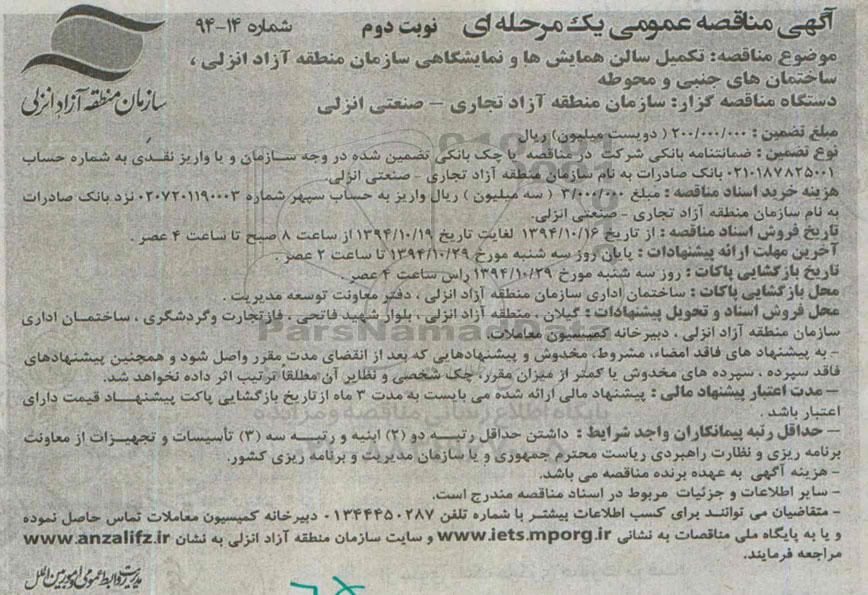 آگهی مناقصه عمومی یک مرحله ای نوبت دوم شماره ۱۴-۹۴
موضوع مناقصه: تکمیل سالن همایش ها و نمایشگاهی سازمان منطقه آزاد انزلی ،
ساختمان های جنبی و محوطه
دستگاه مناقصه گزار: سازمان منطقه آزاد تجاری – صنعتی انزلی
سازمان منطقه آزاد انزلی
مبلغ تضمین : ۲۰۰/۰۰۰/۰۰۰ ( دویست میلیون) ریال
نوع تضمین : ضمانتنامه بانکی شرکت در مناقصه یا چک بانکی تضمین شده در وجه سازمان و یا واریز نقدی به شماره حساب
۰۲۱۰۱۸۷۸۲۵۰۰۱ بانک صادرات به نام سازمان منطقه آزاد تجاری - صنعتی انزلی.
هزینه خرید اسناد مناقصه : مبلغ ۳/۰۰۰/۰۰۰ ( سه میلیون ) ریال واریز به حساب سپهر شماره ۰۲۰۷۲۰۱۱۹۰۰۰۳ نزد بانک صادرات
به نام سازمان منطقه آزاد تجاری - صنعتی انزلی.
تاریخ فروش اسناد مناقصه : از تاریخ ۱۳۹۴/۱۰/۱۶ لغایت تاریخ ۱۳۹۴/۱۰/۱۹ از ساعت ۸ صبح تا ساعت ۴ عصر .
آخرین مهلت ارائه پیشنهادات : پایان روز سه شنبه مورخ ۱۳۹۴/۱۰/۲۹ تا ساعت ۲ عصر .
تاریخ بازگشایی پاکات : روز سه شنبه مورخ ۱۳۹۴/۱۰/۲۹ راس ساعت ۴ عصر .
محل بازگشایی پاکات : ساختمان اداری سازمان منطقه آزاد انزلی ، دفتر معاونت توسعه مدیریت .
محل فروش اسناد و تحویل پیشنهادات : گیلان ، منطقه آزاد انزلی ، بلوار شهید فاتحی ، فاز تجارت و گردشگری ، ساختمان اداری
سازمان منطقه آزاد انزلی ، دبیرخانه کمیسیون معاملات.
ParsNamadData
- به پیشنهاد های فاقد امضاء، مشروط، مخدوش و پیشنهادهایی که بعد از انقضای مدت مقرر واصل شود و همچنین پیشنهادهای
فاقد سپرده ، سپرده های مخدوش یا کمتر از میزان مقرر، چک شخصی و نظایر آن مطلقاً ترتیب اثر داده نخواهد شد.
– مدت اعتبار پیشنهاد مالی : پیشنهاد مالی ارائه شده می بایست به مدت ۳ ماه از تاریخ بازگشایی پاکت پیشنهاد قیمت دارای
اعتبار باشد .
پایگاه اطلاع رسانی مناقصه و مزایده
– حداقل رتبه پیمانکاران واجد شرایط : داشتن حداقل رتبه دو (۲) ابنیه و رتبه سه (۳) تأسیسات و تجهیزات از معاونت
برنامه ریزی و نظارت راهبردی ریاست محترم جمهوری و یا سازمان مدیریت و برنامه ریزی کشور.
- هزینه آگهی به عهده برنده مناقصه می باشد.
- سایر اطلاعات و جزئیات مربوط در اسناد مناقصه مندرج است.
- متقاضیان می توانند برای کسب اطلاعات بیشتر با شماره تلفن ۰۱۳۴۴۴۵۰۲۸۷ دبیرخانه کمیسیون معاملات تماس حاصل نموده
و یا به پایگاه ملی مناقصات به نشانی www.iets.mporg.ir و سایت سازمان منطقه آزاد انزلی به نشان www.anzalifz.ir
مراجعه فرمایند.
مدیریت روابط عمومی و امور بین الملل